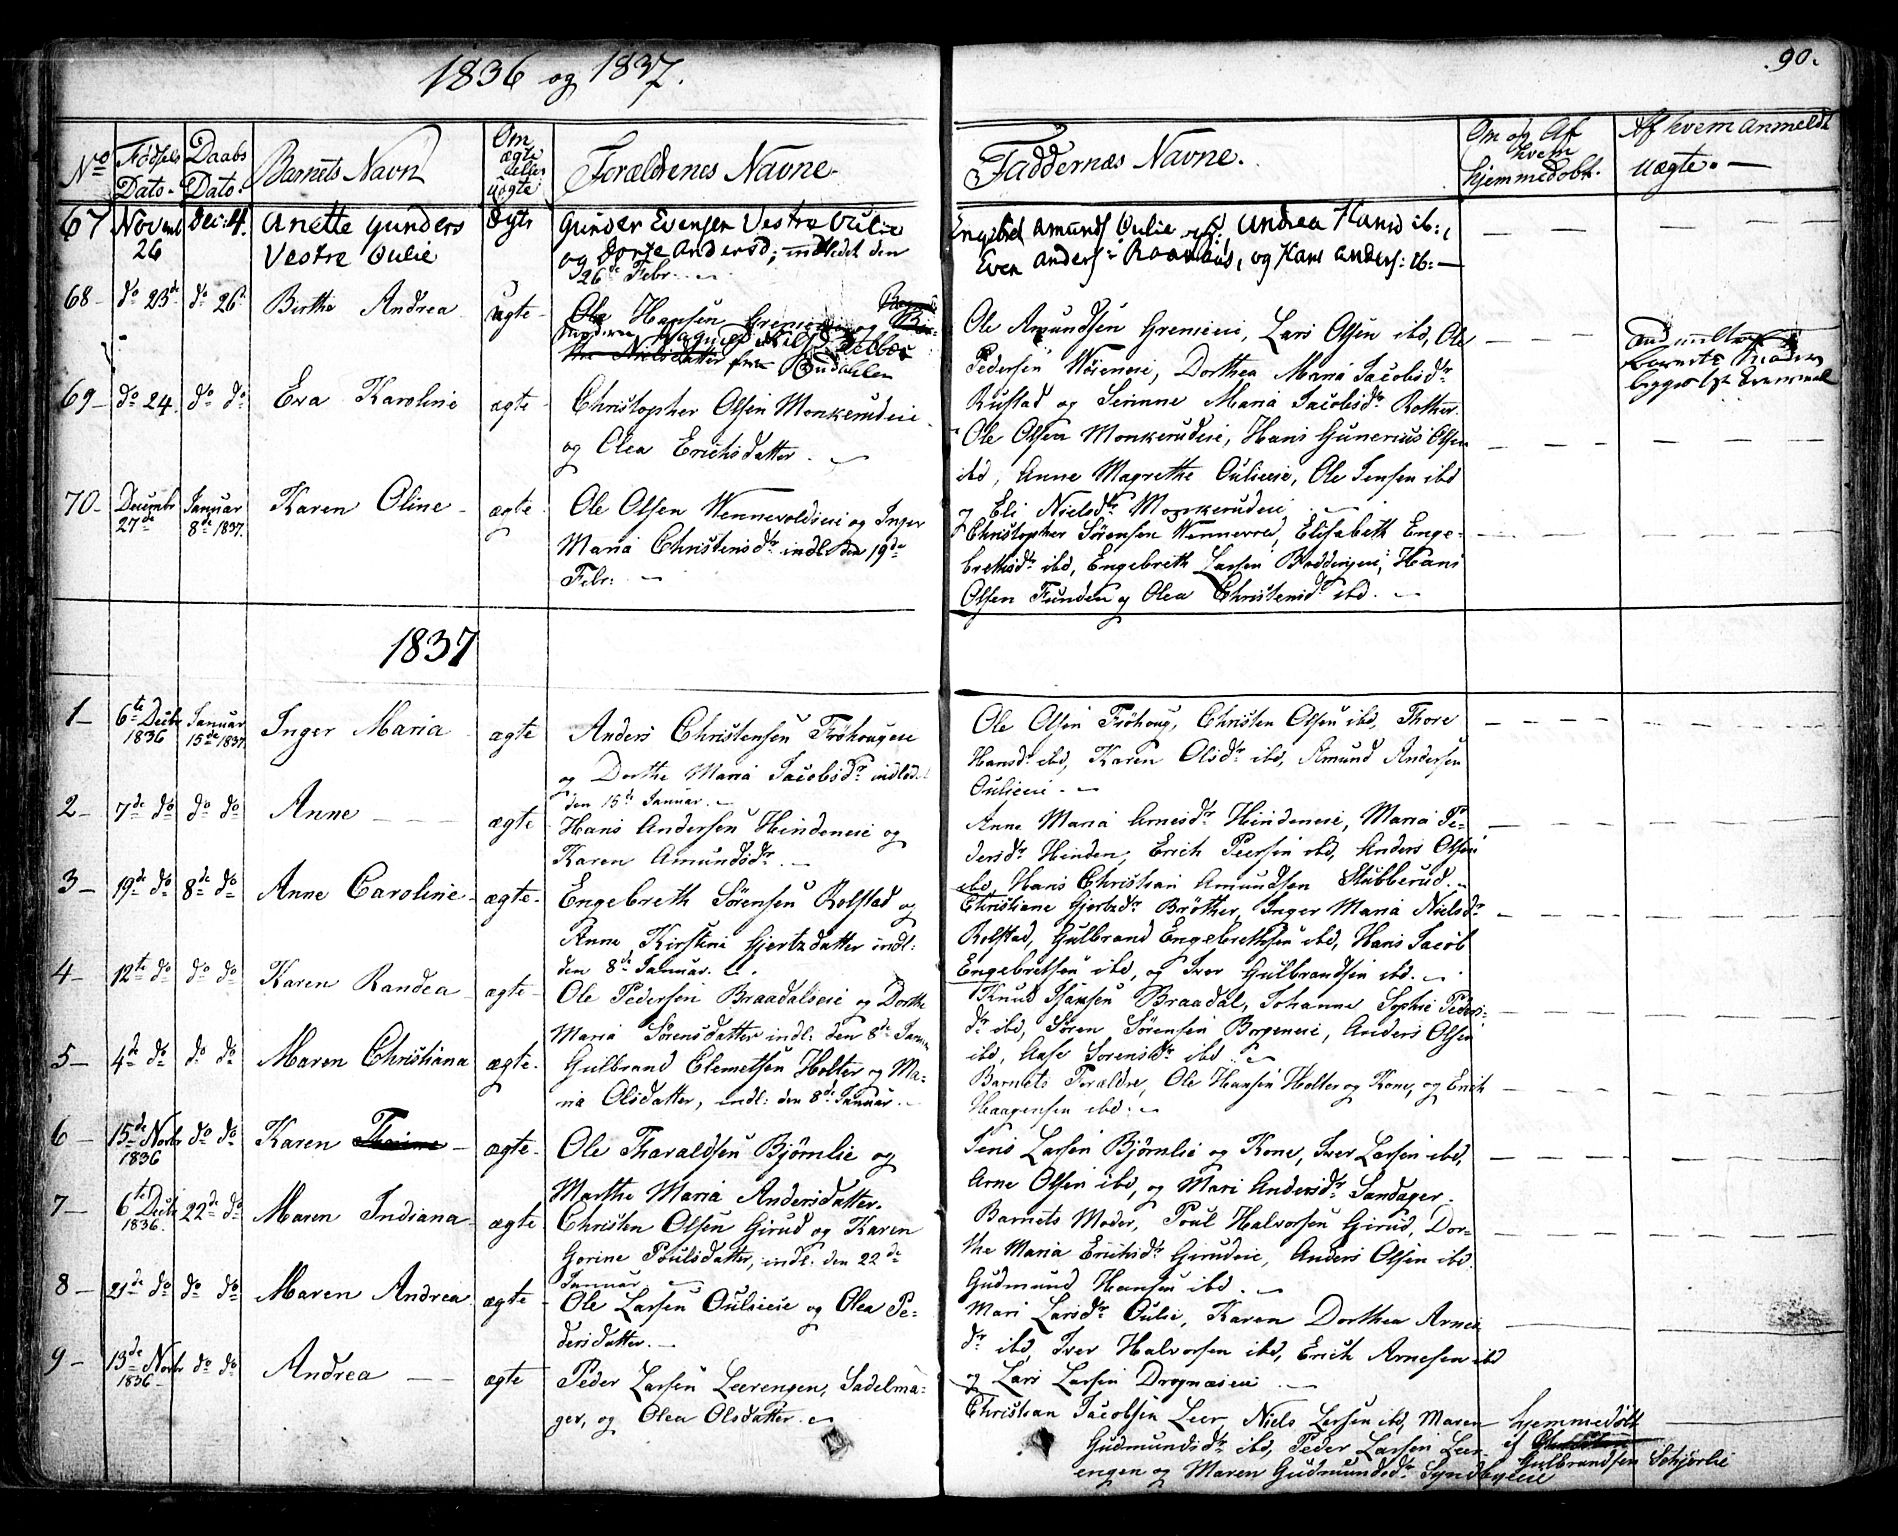 1836 og 1837.
90.
No
Fødsels Dato.
Daabs Dato.
Barnets Navn
Om ægte eller uægte
Forældrenes Navne.
Faddernes Navne.
Om og Af hvem hjemmedøbt.
Af hvem anmeldt uægte.
67 Novemb 26 Dec: 4. Anette Gunders Vestre Oulie ægte
Gunder Evensen Vestre Oulie
og Dorte Andersd; indledet den
26de Febr.
Engebret Amunds Oulie Andrea Hansd ib:,
Even Anders: og Hans Anders: ib:
68 do 23de do 26d Birthe Andrea uægte
Ole Hansen
Ole Amundsen Lars Olsen ibd, Ole
Pedersen Dorthea Maria Jacobsdr
Rustad og Maria Jacobsdr
69 do 24 do do Eva Karoline ægte
Christopher Olsen Monkerudeie
og Olea Erichsdatter.
Ole Olsen Monkerudeie, Hans Gunerius Olsen
ibd, Anne Magrethe Oulieeie, Ole Jensen ibd
og Eli Nielsdr Monkerudeie
70 Decembr 27de Januar 8de 1837. Karen Oline ægte
Ole Olsen Wennevoldseie og Inger
Maria Christensdr indl: den 19de
Febr:
Christopher Sørensen Elisabeth Enge-
brethsdr ibd, Engebreth Larsen Hans
Olsen Funden og Olea Christensdr ibd.
1837
1 6te Decbr 1836 Januar 15de 1837. Inger Maria ægte
Anders Christensen Frøhougeie
og Dorthe Maria Jacobsdr indled.
den 15de Januar.
Ole Olsen Frøhoug, Christen Olsen ibd, Thore
Hansdr ibd, Karen Olsdr ibd, Amund Andersen
Oulieeie
2 7de do do do Anne ægte
Hans Andersen Hindeneie og
Karen Amundsdr.
Anne Maria Arnesdr Hindeneie, Maria Pe-
dersdr Hinden, Erich Peersen ibd, Anders Olsen
ibd, Hans Christian Amundsen Stubberud.
3 19de do 8de do Anne Caroline ægte
Engebreth Sørensen Rolstad og
Anne Kirstine Gjertzdatter indl:
den 8de Januar.
Christiane Gjertzdr Brøther, Inger Maria Nielsdr
Rolstad, Gulbrand Engebrethsen ibd, Hans Jacob
Engebretsen ibd, og Iver Gulbrandsen ibd.
4 12te do do do Karen Randea ægte
Ole Pedersen Braadalseie og Dorthe
Maria Sørensdatter indl: den 8de Januar
Knud Braadal, Johanne Sophie Peders-
dr ibd, Søren Sørensen Borgeneie, Anders Olsen
ibd, Aase Sorensdr ibd.
5 4de do do do Maren Christiana ægte
Gulbrand Clemetsen Holter og Ma-
ria Olsdatter, indl: den 8de Januar.
Barnets Forældre, Ole Hansen Holter og Kone, og Erich
Haagensen ibd.
6 15de Novbr 1836 do do Karen ægte
Ole Tharaldsen Bjømlie og
Marthe Maria Andersdatter.
Jens Larsen Bjørnlie og Kone, Iver Larsen ibd,
Arne Olsen ibd, og Mari Andersdr Sandager.
7 6te Decbr 1836. 22de do Maren Indiana ægte
Christen Olsen Girud og Karen
Gorine Poulsdatter, indl. den 22de
Januar.
Barnets Moder, Poul Halvorsen Girud, Dor-
the Maria Erichsdr Girudeie, Anders Olsen ibd.
Gudmund Hansen ibd.
8 21de do do do Maren Andrea ægte
Ole Larsen Oulieeie og Olea Pe-
dersdatter.
Mari Larsdr Oulie, Karen Dorthea Arnes
dr ibd, Iver Halvorsen ibd, Erich Arnesen ibd
og Lars Larsen
9 13de Novbr 1836 do do Andrea ægte
Peder Larsen Leerengen, Sadelma-
ger, og Olea Olsdatter.
Christian Jacobsen Leer, Niels Larsen ibd, Maren
Gudmundsdr ibd, Peder Larsen Leer-
engen og Maren Gudmundsdr
hjemmedøbt
af
Gulbrandsen